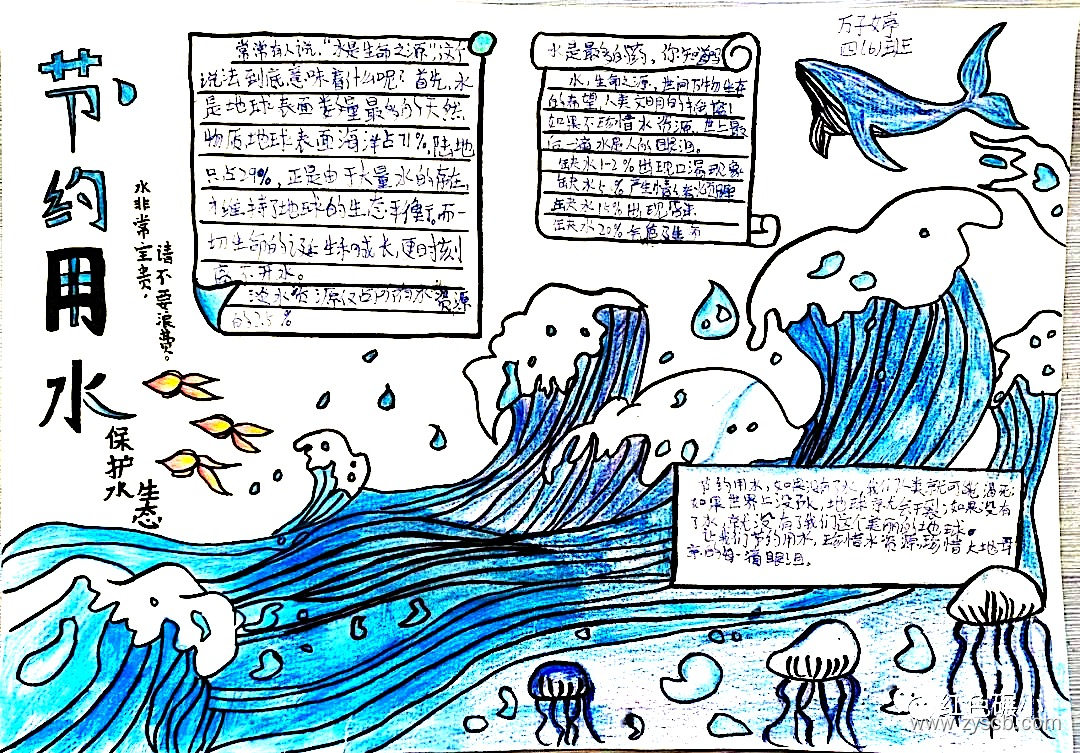 节约用水
水非常宝贵，
请不要浪费。
保护水
生态
常常有人说，"水是生命之源"，这个
说法到底意味着什么呢？首先，水
是地球表面数量最多的天然
物质地球表面海洋占71%，陆地
只占29%，正是由于大量水的存在，
才维持了地球的生态平衡，而一
切生命的诞生和成长，更时刻
离不开水。
淡水资源仅占所有水资源
的2.5%
水是最多的药，你知道吗
水，生命之源，世间万物生存
的希望，人类文明的
如果不珍惜水资源，世上最
后一滴水是人的眼泪。
缺失水1-2%出现口渴现象
缺失水5%产生
缺失水15%出现昏迷
缺失水20%会危及生命
万子婷
四(6)班
节约用水，如果没有了水，我们人类就可能渴死
如果世界上没水，地球就会干裂；如果没有
了水，就没有了我们这个美丽的地球。
让我们节约用水，珍惜水资源，珍惜大地母
亲的每一滴眼泪。
红色碾
www.zyscb.com